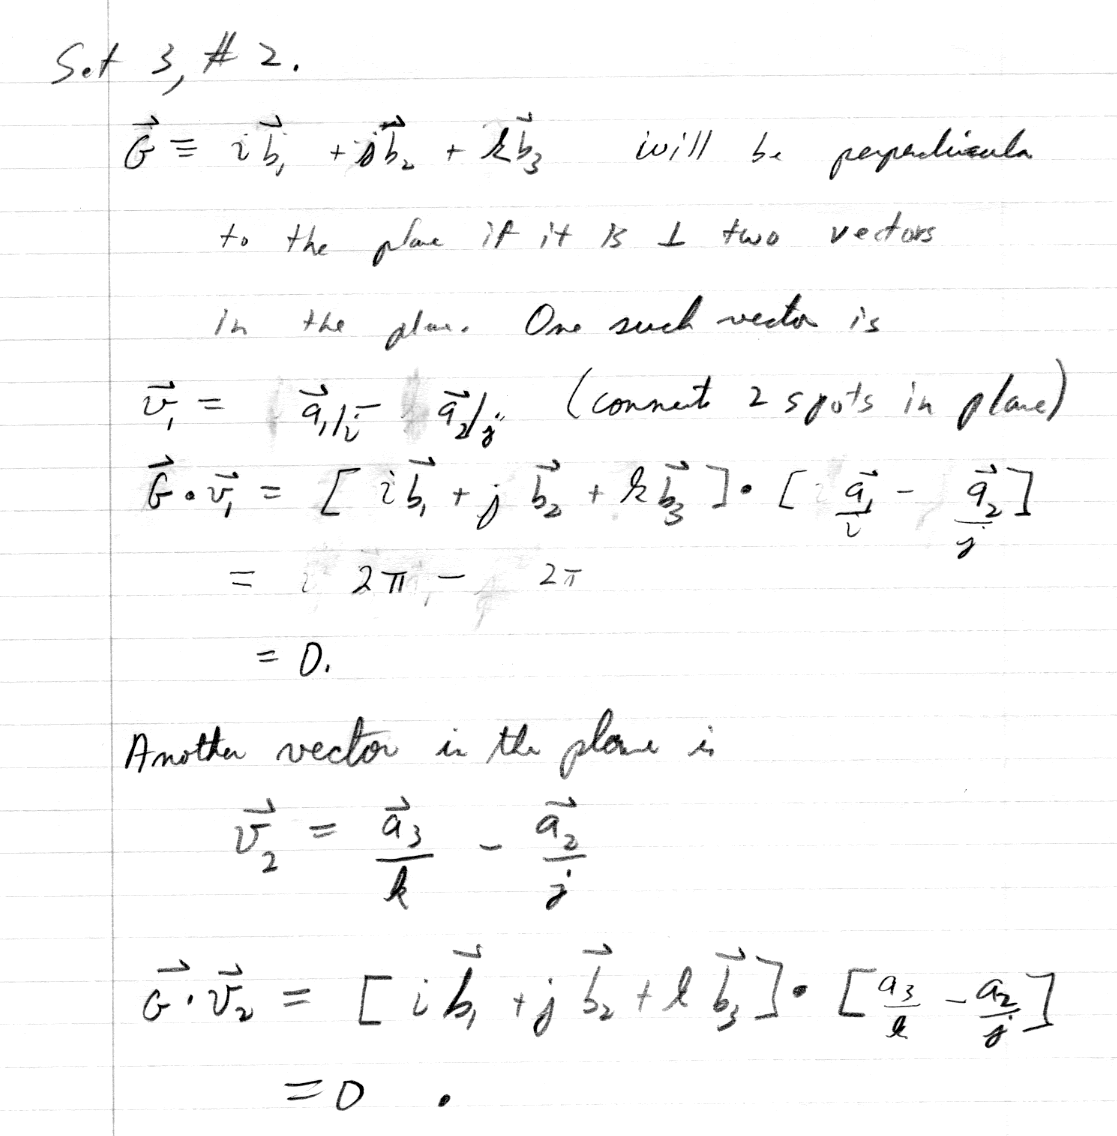 Set 3, # 2.
G⃗ ≡ i b⃗₁ + j b⃗₂ + k b⃗₃ will be perpendicular
to the plane if it is ⊥ two vectors
in the plane. One such vector is
v⃗₁ = a⃗₁/i - a⃗₂/j (connects 2 spots in plane)
G⃗ · v⃗₁ = [ i b⃗₁ + j b⃗₂ + k b⃗₃ ] · [ a⃗₁/i - a⃗₂/j ]
= 2π - 2π
= 0.
Another vector in the plane is
v⃗₂ = a⃗₃/k - a⃗₂/j
G⃗ · v⃗₂ = [ i b⃗₁ + j b⃗₂ + k b⃗₃ ] · [ a₃/k - a₂/j ]
= 0 .